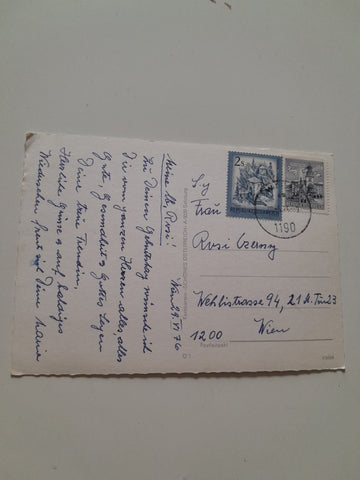 Wien 29.VI.76
Meine lb. Rosi!
Zu Deinem Geburtstag wünsche ich
Dir vom ganzen Herzen alles, alles
Gute, Gesundheit u Gottes Segen
Deine treue Freundin,
Herzliche Grüsse u auf baldiges
Wiedersehen freut sich Deine
2 S
REPUBLIK ÖSTERREICH
1190
S.g.
Frau
Rosi Czerny
Wehlistrasse 94, 21 St. Tür 23
1200 Wien
Postleitzahl